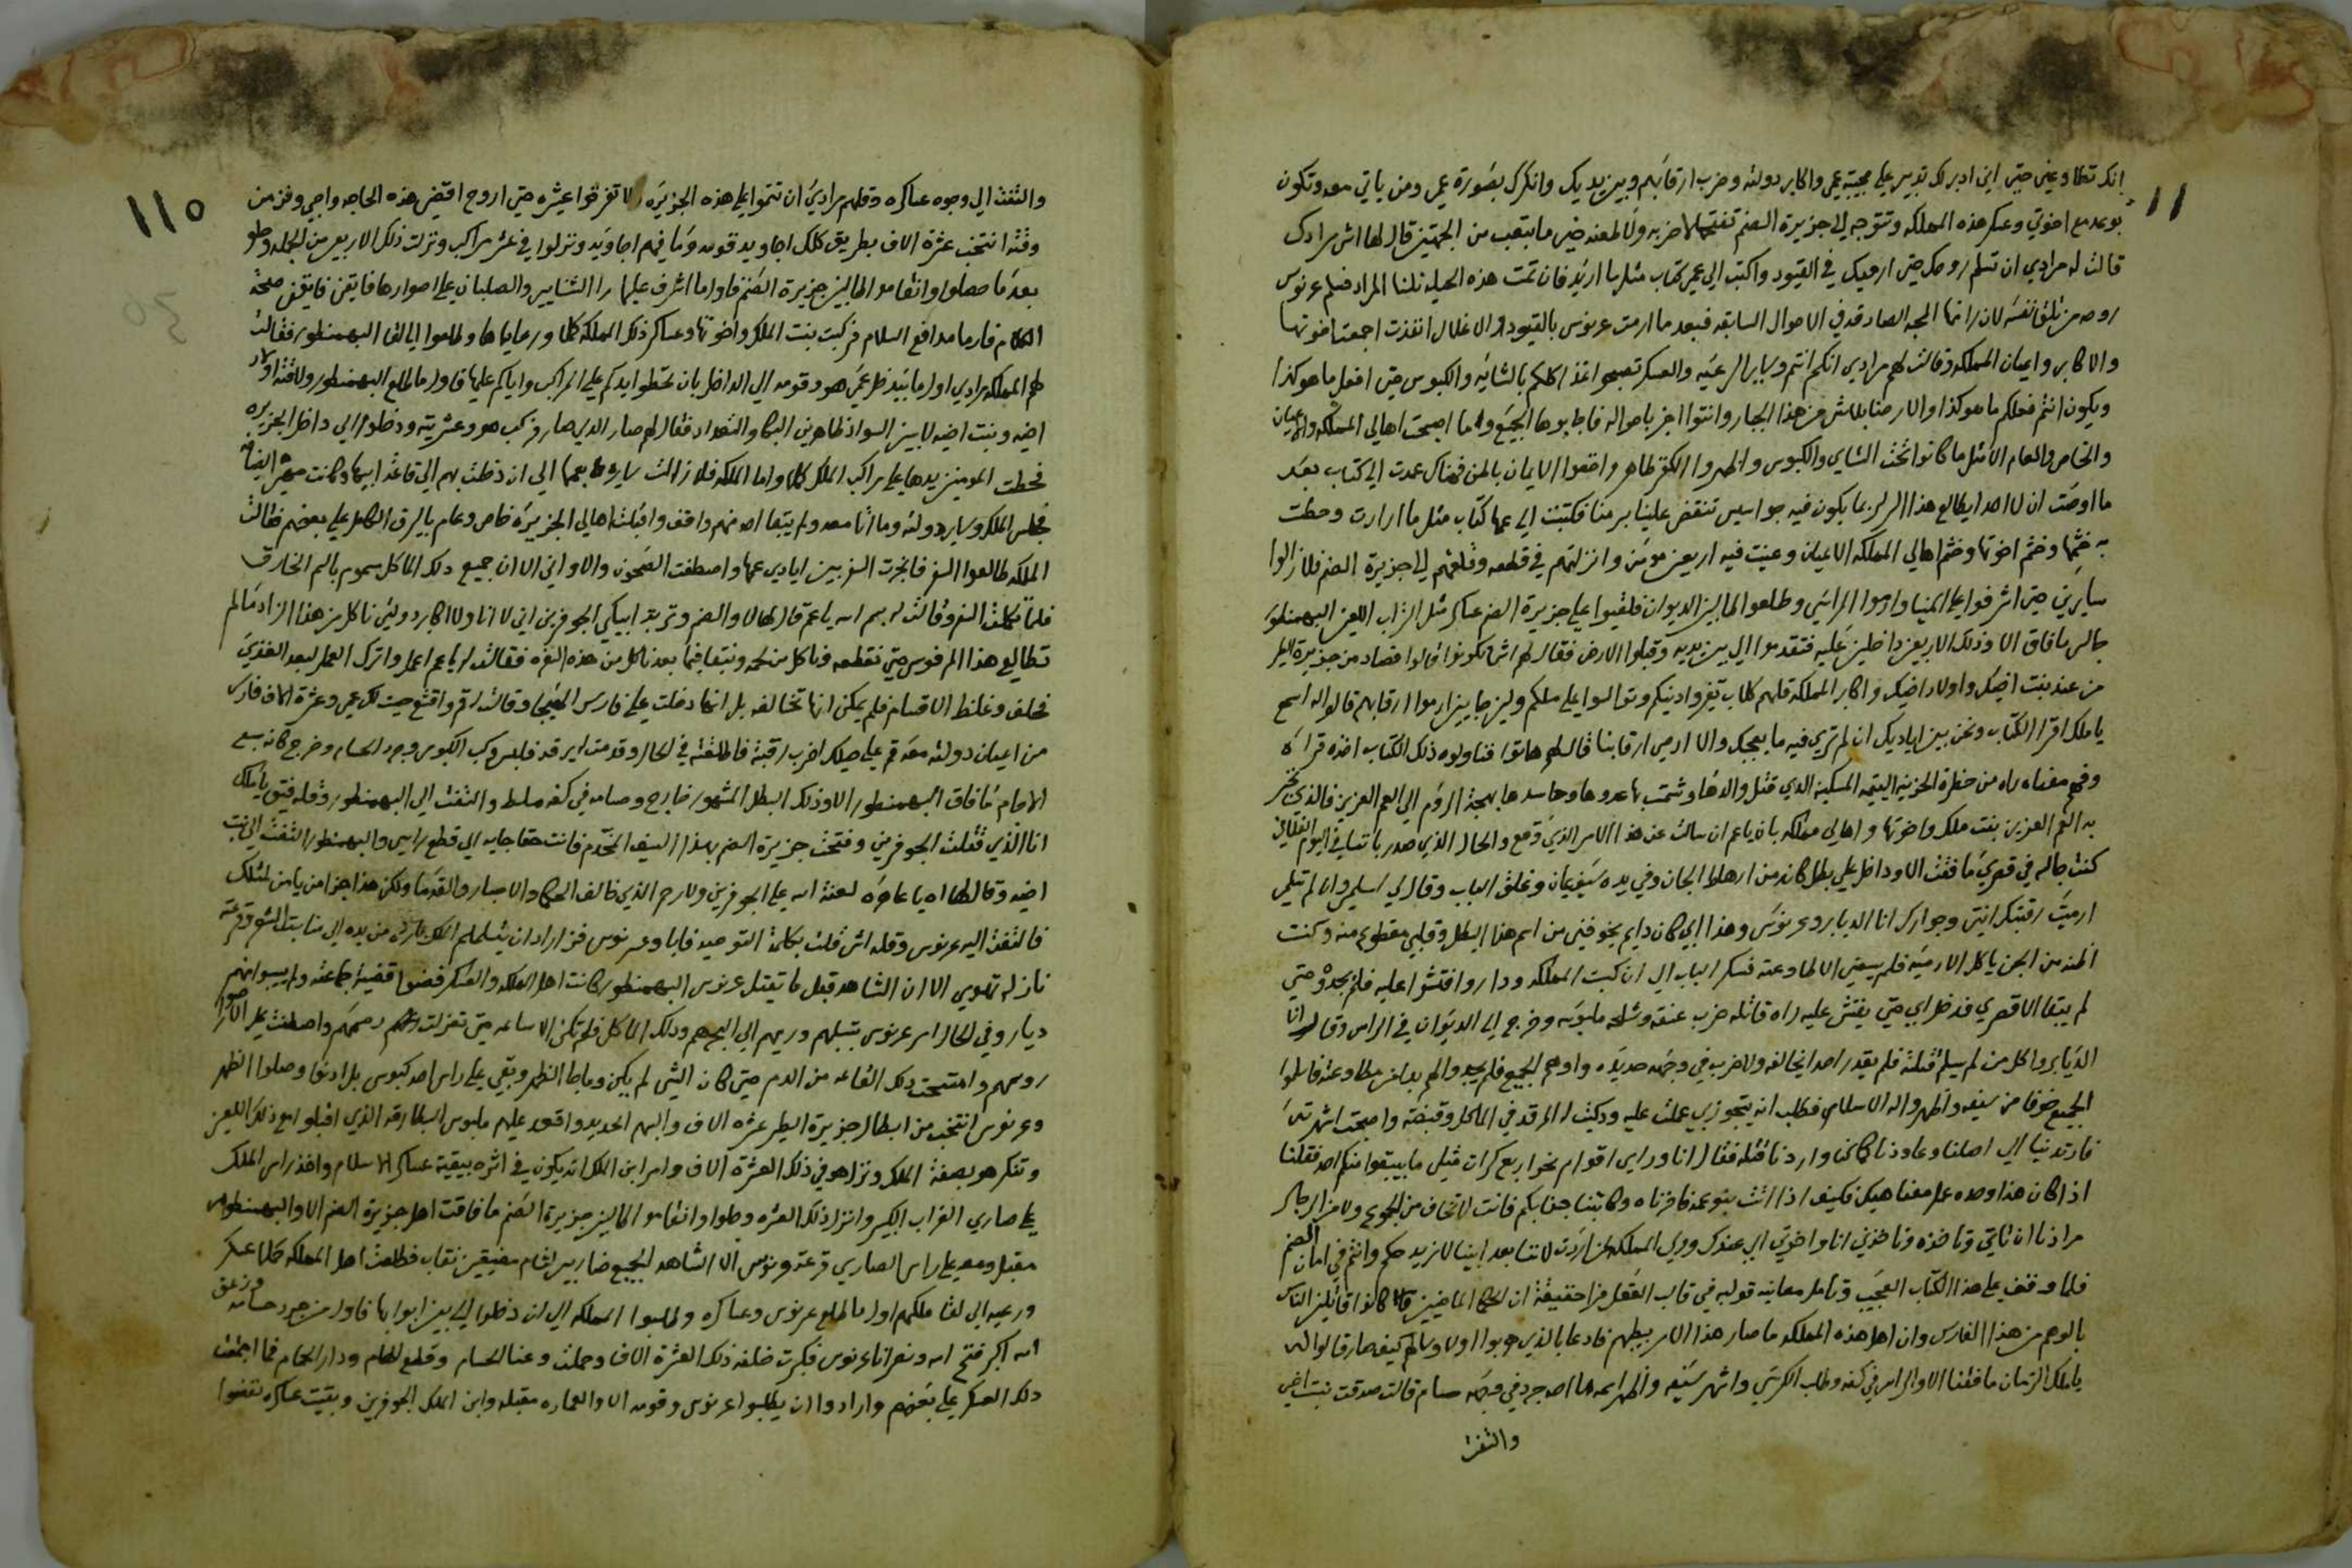 انك تطاوعيني حتى اني ادبر لك تدبير على مجيبة عمي واكابر دولته وضرب ارقابهم وبين يديك وانكرك بصورة عمي ومن ياتي معه وتكون
بوعده مع اخوتي وعسكر هذه المملكه وتتوجه الي جزيرة الصنم تفتحها ضربه ولا طعنه حتى ما بتعب من الجهتين قال لها اش مرادك
قالت له مرادي ان تسلم روحك حتى ارميك في القيود واكتب الي عمي كتاب مثل ما اريد فان تمت هذه الحيله نلنا المراد فسلم عرنوس
روحه من تلق نفسه لان رائها المحبه الصادقه في الاحوال السابقه فبعد ما ارمت عرنوس بالقيود والاغلال انفذت اجمعت اخوتها
والاكابر واعيان المملكه وقالت لهم مرادي انكم انتم وساير الرعيه والعسكر تصبحوا غدا كلكم بالشايه والكبوس حتى افعل ما هو كذا
ويكون انتم فعلكم ما هو كذا والا رحنا بلاش من هذا الجبار وانتوا اخبر باحواله فاجابوها الجميع ولما اصبحت اهالي المملكه والاعيان
والخاص والعام الا مثل ما كانوا تحت الشاي والكبوس واظهروا الكفر ظاهر واخفوا الايمان بالمن فهناك عمدت الي كتاب بعد
ما اوصت ان لا احد ايطالع هذا السر لربما يكون فيه جواسيس تنقض علينا برمنا فكتبت الي عمها كتاب مثل ما ارادت وحطت
به ختمها وختم اخوتها وختم اهالي المملكه الاعيان وعينت فيه اربعين مومن وانزلتهم في قطعه وقلعتهم الي جزيرة الصنم فلا زالوا
سايرين حتى اشرفوا على المينا وارموا المراسي وطلعوا طالبين الديوان فلقيوا على جزيرة الصنم عساكر مثل التراب اللعين البهمنطور
جالس ما فاق الا وذلك الاربعين داخلين عليه فتقدموا الي بين يديه وقبلوا الارض فقال لهم اش تكونوا قالوا قصاد من جزيرة الطير
من عند بنت اخيك واولاد اخيك واكابر المملكه قلهم كلاب تغيروا دينكم وتوالسوا على ملكم ولين جايين ارموا ارقابهم قالوا له اسمع
ياملك اقرا الكتاب ونحن بين اياديك ان لم تري فيه ما يعجبك والا ارمي ارقابنا قال لهم هاتوا فناولوه ذلك الكتاب اخذه قراه
وفهم معناه راه من حضرة الحزينة اليتيمه المسكينه الذي قتل والدها وشمت بها عدوها وحاسدها بهجة الروم الي العم العزيز فالذي نخبر
به العم العزيز بنت ملك واخوتها واهالي مملكه بان ياعم ان سالت عن هذا الامر الذي وقع والحال الذي صدر باننا في اليوم الفلاني
كنت جالسه في قصري ما فقت الا وداخل علي بطل كانه من ارهاط الجان وفي يده سيف يمان وغلق الباب وقال لي اسلمي وان لم تسلمي
ارميت رقبتك انتي وجوارك انا الديابرو عرنوس وهذا ابي كان دايم يخوفني من اسم هذا البطل وقلبي مقطوع منه وكنت
اظنه من الجن ياكل الادميه فلم يسعني الا طاوعته فسكر الباب الي ان كبت المملكه وداروا فتشوا عليه فلم يجدوه حتى
لم يبقا الا قصري فدخل ابي حتى يفتش عليه راه قاتله ضرب عنقه وشلحه ملبوسه وخرج الي الديوان في الراس وقال انا
الديابروا كل من لم يسلم قتلته فلم يقدر احد ايخالفه ولا ضرب في وجهه حديده واوهم الجميع فلم يجدوا لهم بدا من مطاوعته فاسلموا
الجميع خوفا من سيفه واظهروا له الاسلام وطلب انه يتجوز بي عملت عليه ودكيت المرقد في الماكل وقبضته واصبحت اشهرت
فارتدينا الي اصلنا وعاودنا كما كنا واردنا قتله فقال انا ورايي اقوام نحوا ربع كرات قتلي ما بيبقوا منكم احد فقلنا
اذا كان هذا وحده عمل معنا هيك فكيف اذا اتت بنوعمه فاخرناه وكاتبنا جنابكم فانت لا تخاف من الجموع ولا من الرجال
مرادنا ان تاتي وتاخذه وتاخذني انا واخوتي الي عندك وولي المملكه لمن اردت لاننا بعد ابينا لا نريد حكم وانتم في امان الصنم
فلما وقف على هذا الكتاب العجيب وتامل معانيه قوله في قاب العقل من احقيقة ان الحكما الماضيين كانوا قائلين الناس
بالوهم من هذا الفارس وان اهل هذه المملكه ما صار هذا الامر بيطهم فادعا بالذين جوبوا اولا وسالهم كيف صار قالوا له
ياملك الزمان ما فقنا الا والراس في كفه وطلب الكرسي واشهر سيفه واظهر اسمه ما احد جرد في وجهه حسام قالت صدقت بنت اخي
والتفت
١١
والتفت الي وجوه عساكره وقلهم مرادي ان تتموا على هذه الجزيره ولا تفرقوا عيشره حتى اروح اقضي هذه الحاجه واجي وفز من
وقته انتخب عشرة الاف بطريق كلك اجاويد قومه وما فيهم اجاويد ونزلوا في عشر مراكب ونزلت ذلك الاربعين من الجمله وحلو
بعد ما حصلوا وانقاموا طالبين جزيرة الصنم فاول ما اشرف عليها را الشنايير والصلبان على اصوارها فايقن فايقن صحة
الكلام فارما مدافع السلام فركبت بنت الملك واخوتها وعساكر ذلك المملكه كلها ورعاياها وطلعوا الي القا البهمنطور فقالت
لهم المملكه مرادي اول ما يدخل عمي هو وقومه الي الداخل بان تحطوا ايدكم على المراكب واياكم عليها فاول ما طلع البهمنطور ولاقته اولاد
اخيه وبنت اخيه لابسين السواد ظاهرين البكا والتعداد فقال لهم صار الذي صار فركب هو وعشرته ودخلوا الي داخل الجزيره
فحطت المومنين يدها على مراكب الملك كلها واما الملكه فلا زالت سايره بعمها الي ان دخلت بهم الي قاعة ابيها وكانت
فجلس الملك وساير دولته وما اتا معه ولم يبقا احد منهم واقف واقبلت اهالي الجزيره خاص وعام بالبرق الكامل على بعضهم فقالت
الملكه طالعوا السفر فانجرت السفر بين ايادي عمها واصطفت الصحون والاواني الا ان جميع ذلك الماكل مسموم بالسم الخارق
فلما كملت السفره قالت له بسم الله ياعم قال لها لا والصنم وتربة ابيكي الجوفرين اني لا انا ولا اكابر دولتي ناكل من هذا الزاد ما لم
تطالعي هذا المرفوس حتى نقطعه وناكل من لحمه ونبتقا فيما بعد ناكل من هذه السفره فقالت له ياعم اعمل واترك العمل لبعد الغدي
فحلف وغلظ الاقسام فلم يمكن انها تخالفه بل انها دخلت على فارس الهيجا وقالت له قم وافتح حيت لك عمي وعشرة الاف فارس
من اعيان دولته معه قم على حيلك اضرب رقبته فاطلقته في الحال وقدمت ايرقه فلبس وكب الكبوس وجرد الحسام وخرج كانه سبع
الاجام ما فاق البهمنطور الا وذلك البطل المشهور خارج وحسامه في كفه مسلط والتفت الي البهمنطور وقله فيق ياملك
انا الذي قتلت الجوفرين وفتحت جزيرة الصنم بهذا السيف المخدم فانت حقا جايه الي قطع راسي والبهمنطور التفت الي بنت
اخيه وقال لها اه يا عاهره لعنة الله على الجوفرين ولا رحم الذي خالف الحكما والاحبار والقدما ولكن هذا جزا من يامن لمثلك
فالتفت اليه عرنوس وقله اش قلت بكلمة التوحيد فابا وعرنوس فز اراد ان يسلمه من يده الي
نازله تهوي الا ان الشاهد قبل ما يقتل عرنوس البهمنطور كانت اهل المملكه والعسكر قضوا قضية جماعته ولم يبيقوا منهم
ديار وفي الحال امر عرنوس بشيلهم ورميهم الي البحر هم وذلك الماكل فلم تكن الا ساعه حتى تعزلت
روسهم وامتسحت ذلك القاعه من الدم حتى كان الشي لم يكن وما جا الظهر وبقي على راس احد كبوس بل اذنوا وصلوا الظهر
وعرنوس انتخب من ابطال جزيرة الطير عشره الاف والبسهم الحديد واقعد عليهم ملبوس البطارقه الذي اقبلوا مع ذلك اللعين
وتنكر هو بصفة الملك ونزل هو في ذلك العشرة الاف وامر ابن الملك انه يكون في اثره ببقية عساكر الاسلام واخذ راس الملك
على صاري الغراب الكبير وانزل ذلك العشره وحلوا وانقاموا طالبين جزيرة الصنم ما فاقت اهل جزيرة الصنم الا والبهمنطور
مقبل ومعه على راس الصاري قرعة عرنوس الا الشاهد الجميع ضاربين لثام مضيقين نقاب فطلعت اهل المملكه كلها عسكر
ورعيه الي لقا ملكهم اول ما طلع عرنوس وعساكره وطلبوا المملكه الي ان دخلوا الي بين ابوابها فاول من جرد حسامه وزعق
الله اكبر فتح الله ونصر انا عرنوس فكرت خلفه ذلك العشرة الاف وحملت وعنا الحسام وقطع اللحام ودار الحمام فما اجتمعت
ذلك العسكر على بعضهم وارادوا ان يطلبوا عرنوس وقومه الا والعماره مقبله وابن الملك الجوفرين وبقيت عساكره نفضوا
١١٥